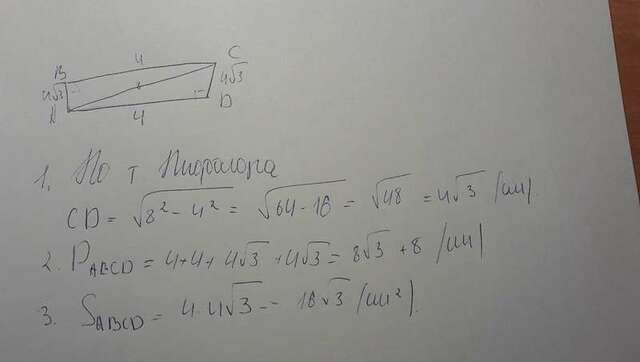 4
B C
4√3 4√3
A D
4
1. По т Пифагора
CD = √8² - 4² = √64 - 16 = √48 = 4√3 (см)
2. P ABCD = 4+4+ 4√3 + 4√3 = 8√3 + 8 (см)
3. S ABCD = 4 · 4√3 = 16√3 (см²).